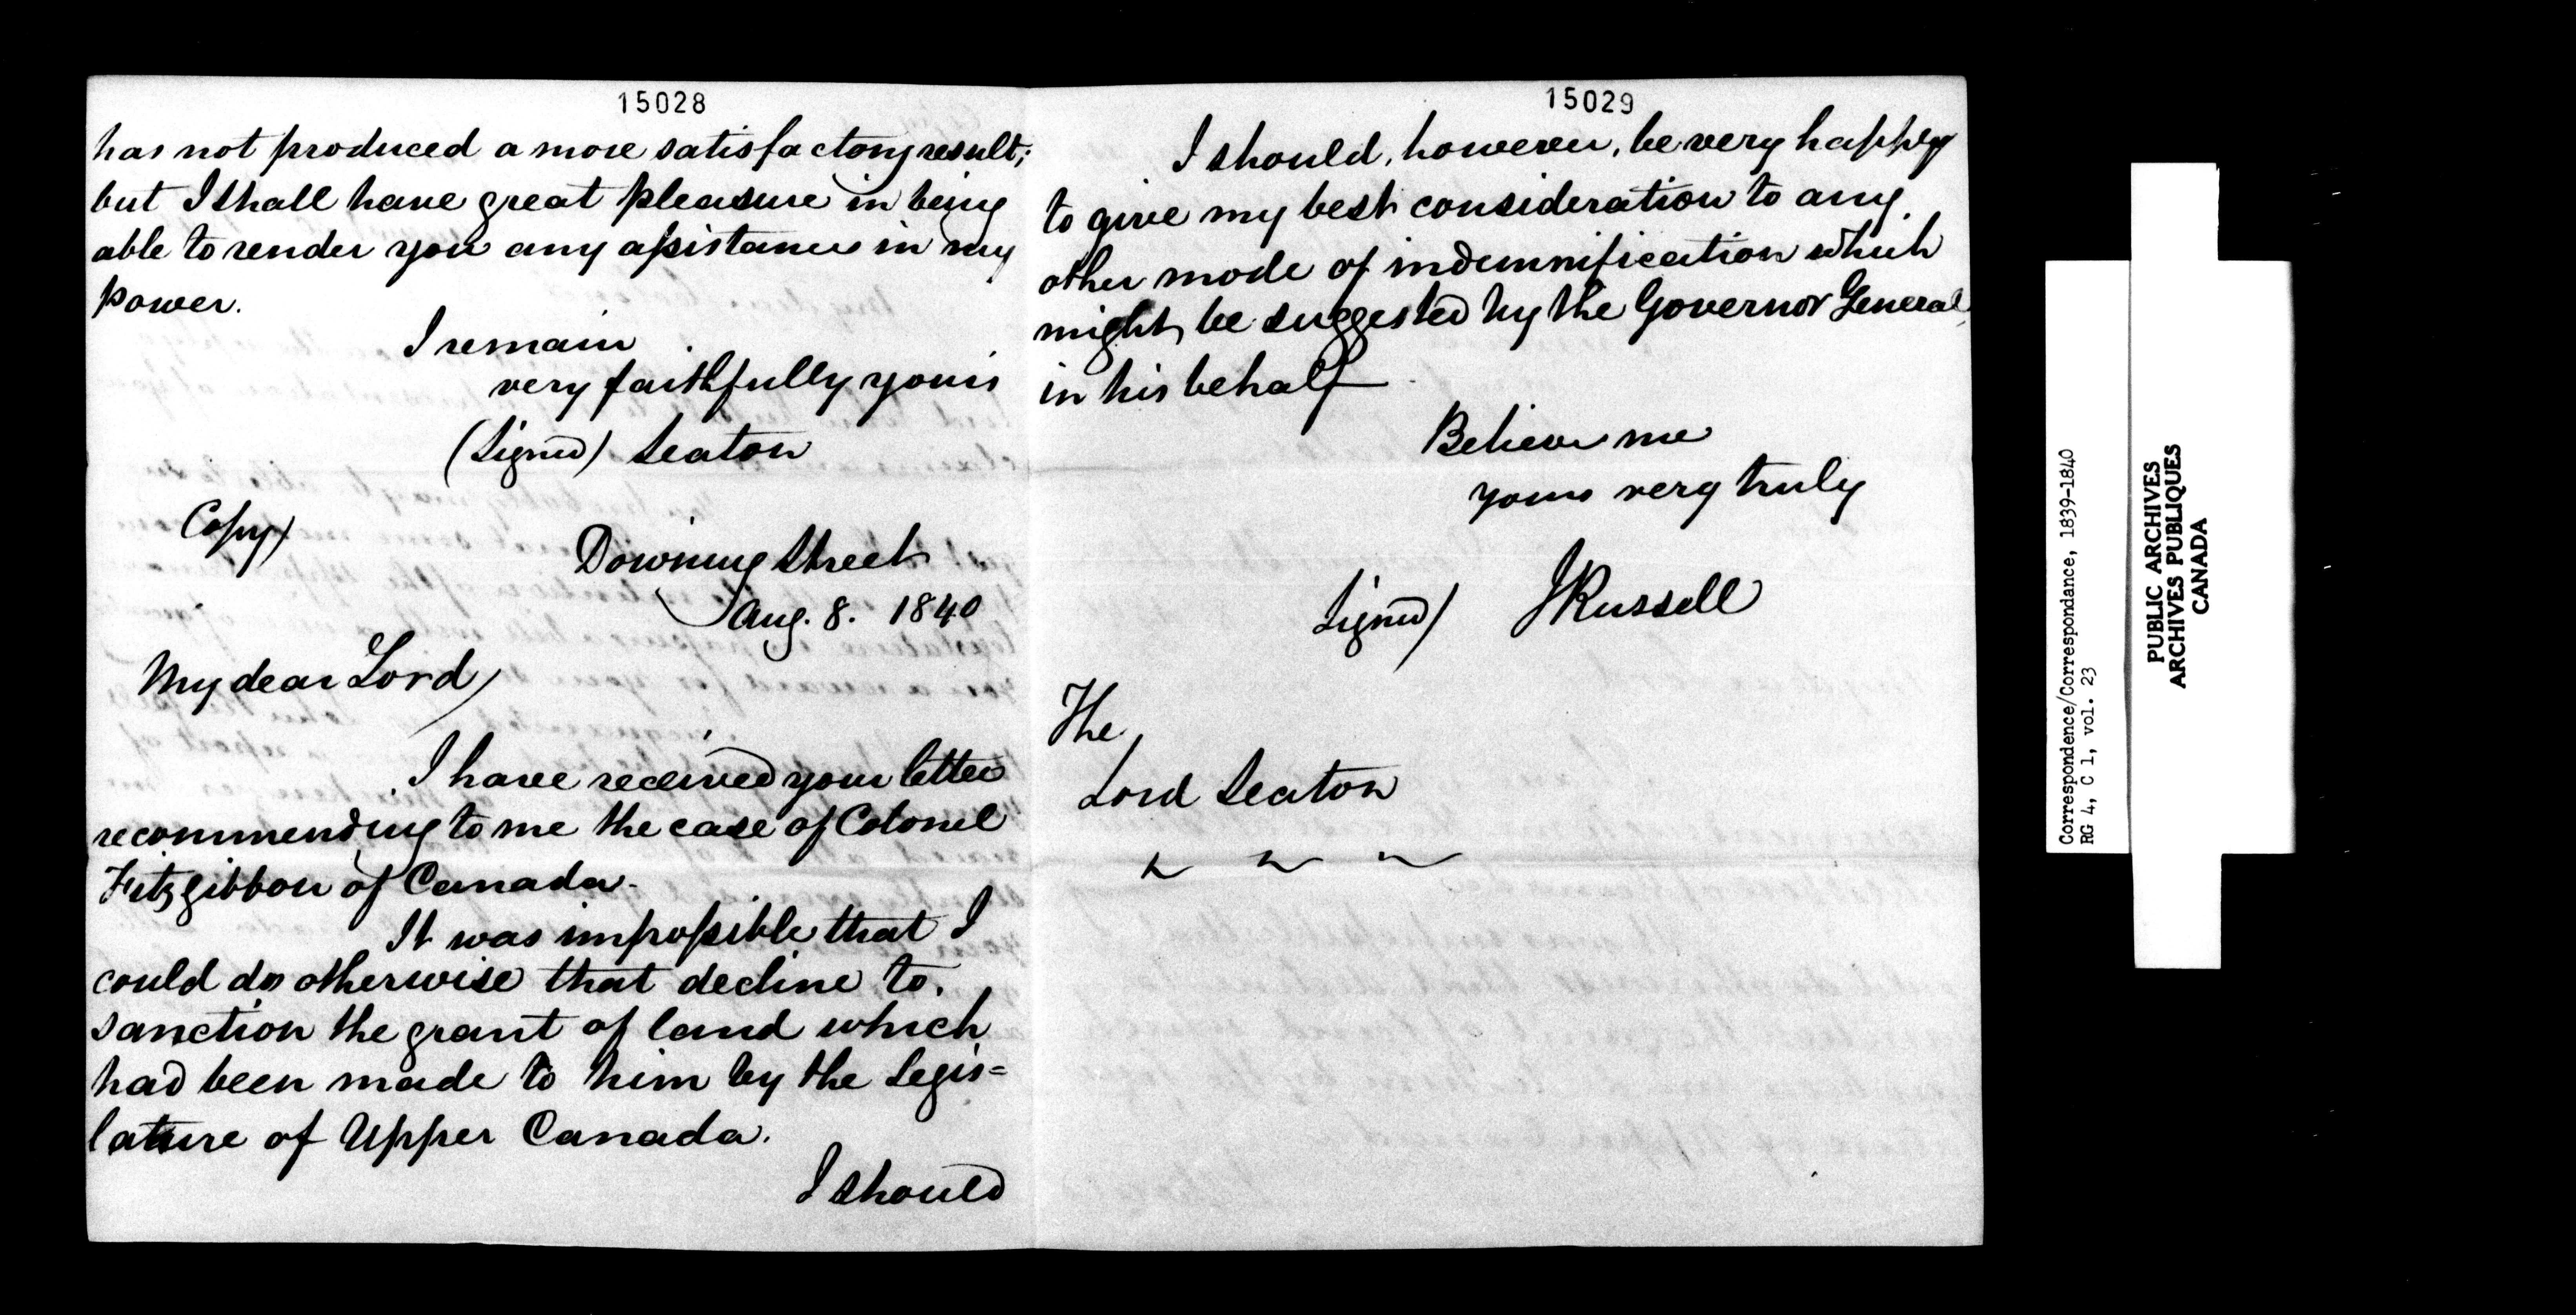 15028
has not produced a more satisfactory result;
but I shall have great pleasure in being
able to render you any assistance in my
power.
I remain
very faithfully yours
(Signed) Seaton
Copy)
Downing Street
Aug. 8. 1840
My dear Lord,
I have received your letter
recommending to me the case of Colonel
Fitzgibbon of Canada.
It was impossible that I
could do otherwise that decline to
sanction the grant of land which
had been made to him by the Legis=
lature of Upper Canada.
I should
15029
I should, however, be very happy
to give my best consideration to any
other mode of indemnification which
might be suggested by the Governor General
in his behalf
Believe me
yours very truly
Signed) J Russell
The
Lord Seaton
Correspondence/Correspondance, 1839-1840
RG 4, C 1, vol. 23
PUBLIC ARCHIVES
ARCHIVES PUBLIQUES
CANADA